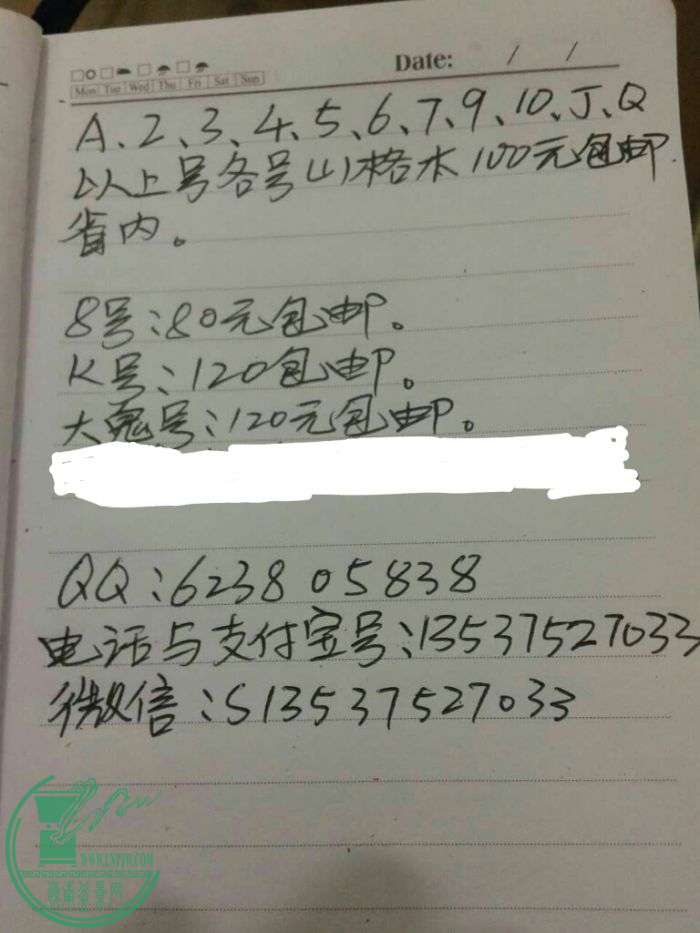 Date: / /
Mon Tue Wed Thu Fri Sat Sun
A、2、3、4、5、6、7、9、10、J、Q
以上号各号山格木100元包邮.
省内。
8号:80元包邮。
K号:120包邮。
大鬼号:120元包邮。
QQ:623805838
电话与支付宝号:13537527033
微信:S13537527033